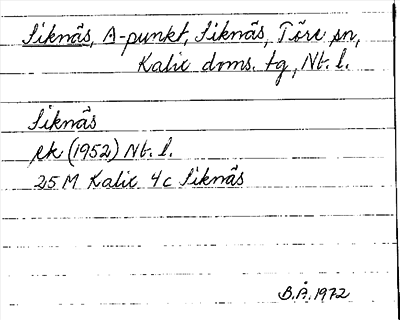 Siknäs, A-punkt, Siknäs, Töre sn,
Kalix dms. tg, Nb. l.
Siknäs
rk (1952) Nb. l.
25 M Kalix 4c Siknäs
B.Å. 1972